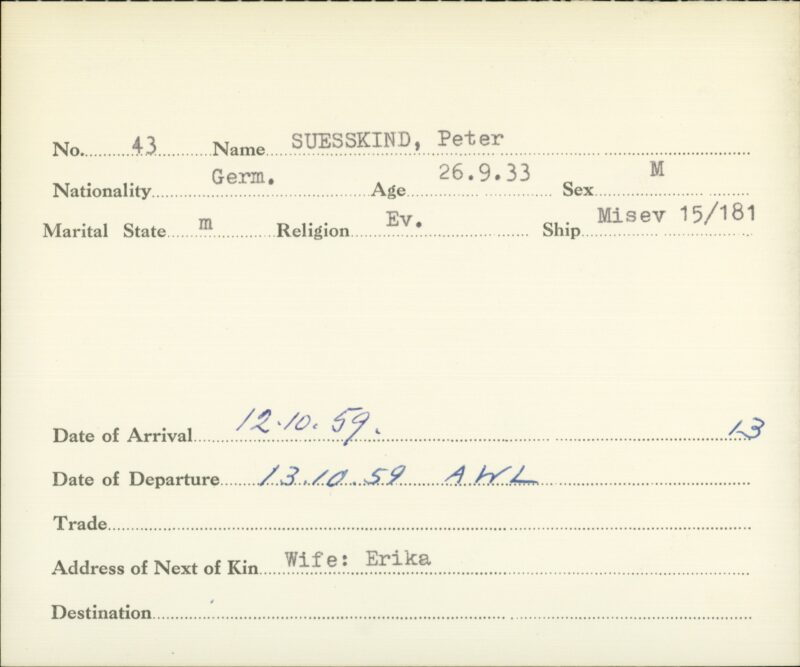 No. 43 Name SUESSKIND, Peter
Nationality Germ. Age 26.9.33 Sex M
Marital State m Religion Ev. Ship Misev 15/181
Date of Arrival 12.10.59. 13
Date of Departure 13.10.59 AWL
Trade
Address of Next of Kin Wife: Erika
Destination